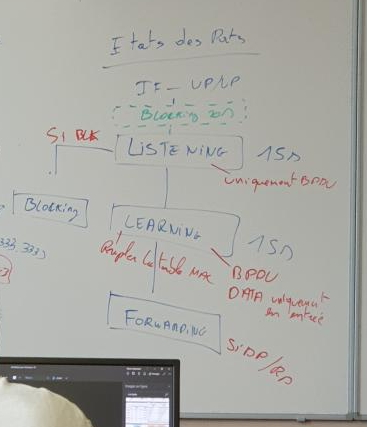 Etats des Ports
IF - UP/UP
Blocking 20s
Si BLK
LISTENING
15s
uniquement BPDU
Blocking
LEARNING
15s
Remplir la table MAC
BPDU
DATA uniquement
en entrée
FORWARDING
Si DP/RP